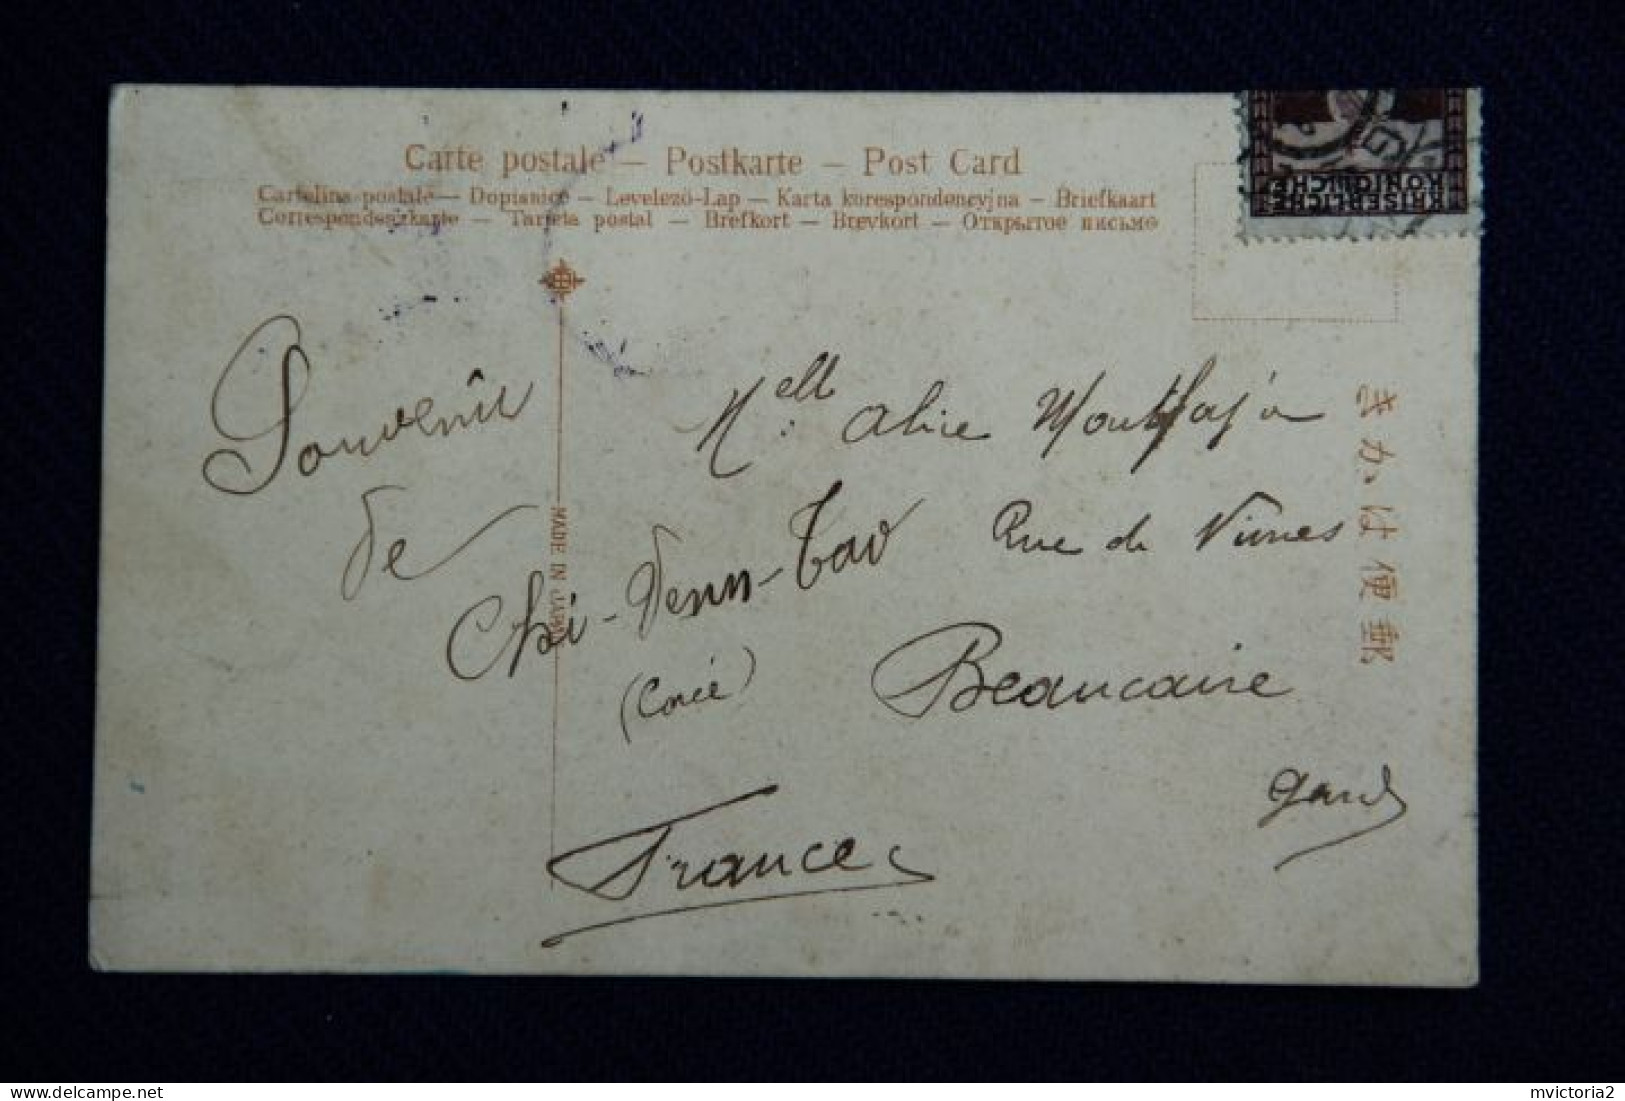 Carte postale — Postkarte — Post Card
Cartolina postale — Dopisnice — Levelezö-Lap — Karta korespondencyjna — Briefkaart
Correspondenzkarte — Tarjeta postal — Brefkort — Brevkort — Открытое письмо
KAISERLICHE
KÖNIGLICHE
Souvenir
de
Chi-Denn-Tav
(Corée)
MADE IN JAPAN
Mell Alice
Rue de Nimes
Beaucaire
Gard
France
きかは便郵
mvictoria2